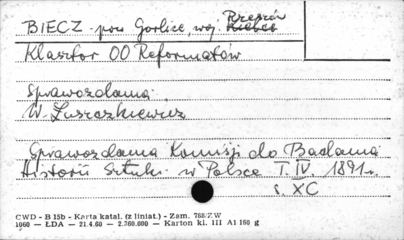 BIECZ pow Gorlice, woj. Rzeszów
Klasztor OO Reformatów
Sprawozdania
W. Łuszczkiewicz
Sprawozdania Komisji do Badania
Historii Sztuki w Polsce T. IV. 1891 r.
s. XC
CWD - B 15b - Karta katal. (z liniat.) - Zam. 768/Z.W
1960 — ŁDA — 21.4.60 — 2.360.000 — Karton kl. III A1 160 g